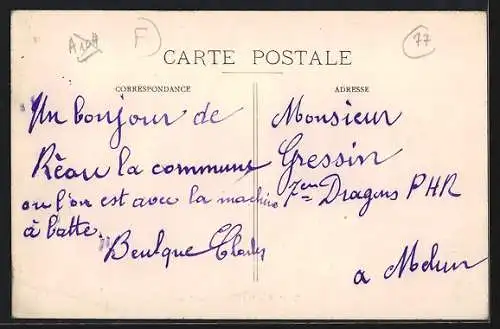 F
77
CARTE POSTALE
CORRESPONDANCE
Un bonjour de
Réau la commune
ou l'on est avec la machine
à battre.
ADRESSE
Monsieur
Gressin
7em Dragons PHR
a Melun